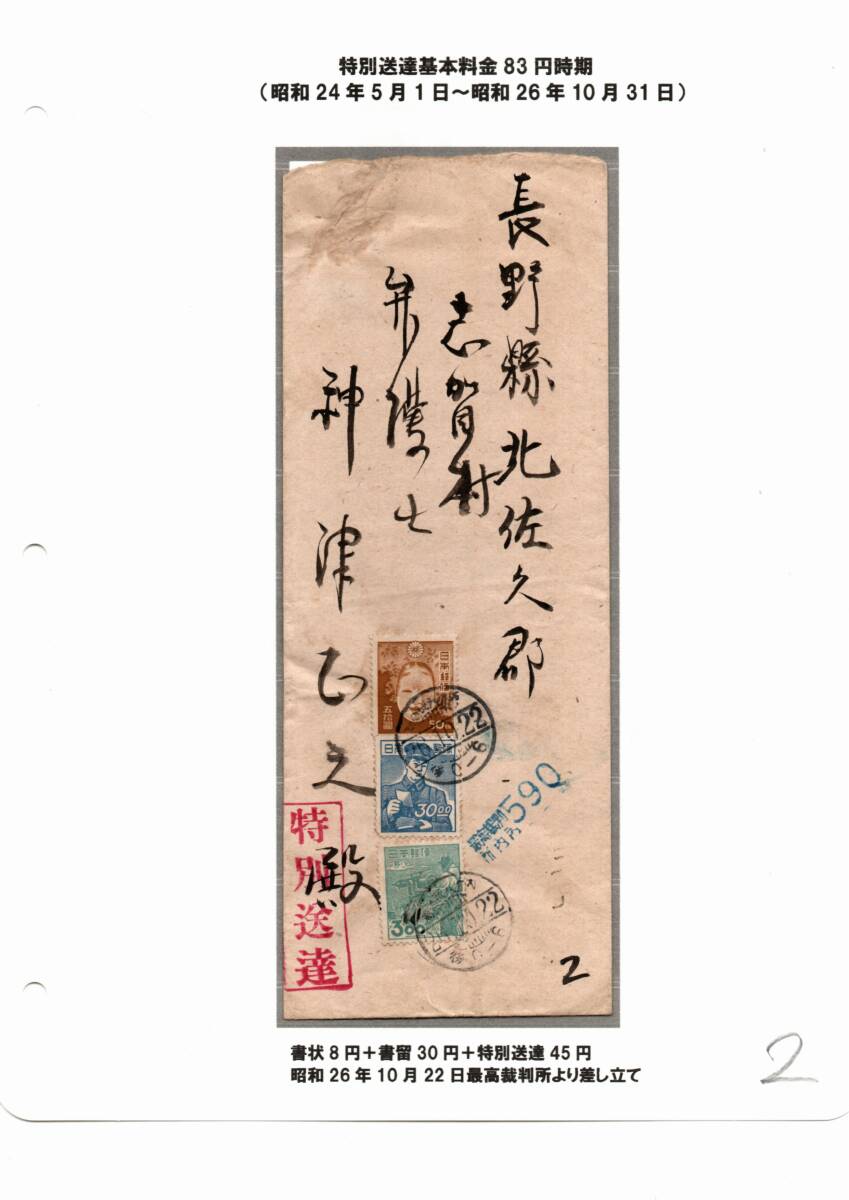 特別送達基本料金83円時期
(昭和24年5月1日~昭和26年10月31日)
長野縣北佐久郡
志賀村
弁護士
神津正之殿
日本郵便
五拾圓
50
日本郵便
30.00
日本郵便
3.00
22
0-6
22
0-6
590
特別送達
2
書状8円+書留30円+特別送達45円
昭和26年10月22日最高裁判所より差し立て
2